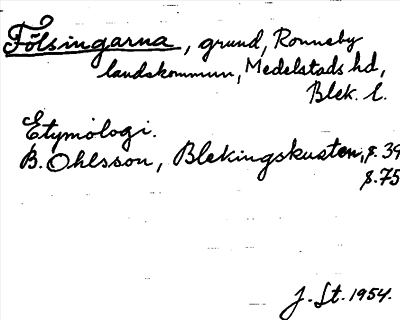 Fölsingarna, grund, Ronneby
landskommun, Medelstads hd,
Blek. l.
Etymologi.
B. Ohlsson, Blekingskusten, s. 39
s. 75
J. St. 1954.